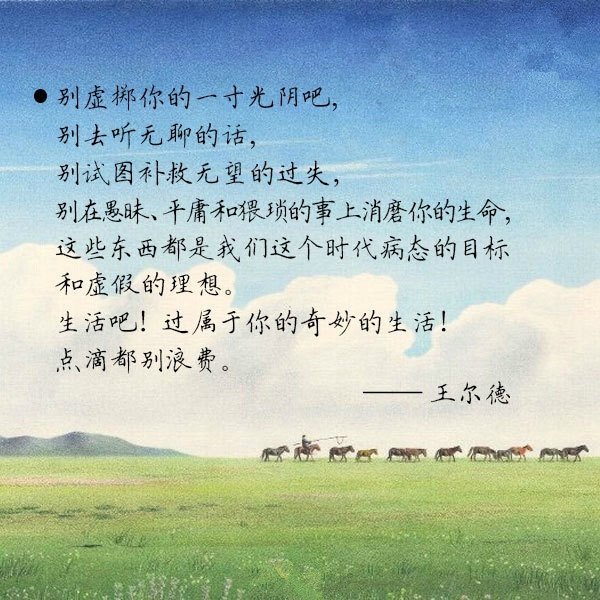 ●别虚掷你的一寸光阴吧，
别去听无聊的话，
别试图补救无望的过失，
别在愚昧、平庸和猥琐的事上消磨你的生命，
这些东西都是我们这个时代病态的目标
和虚假的理想。
生活吧！过属于你的奇妙的生活！
点滴都别浪费。
—— 王尔德